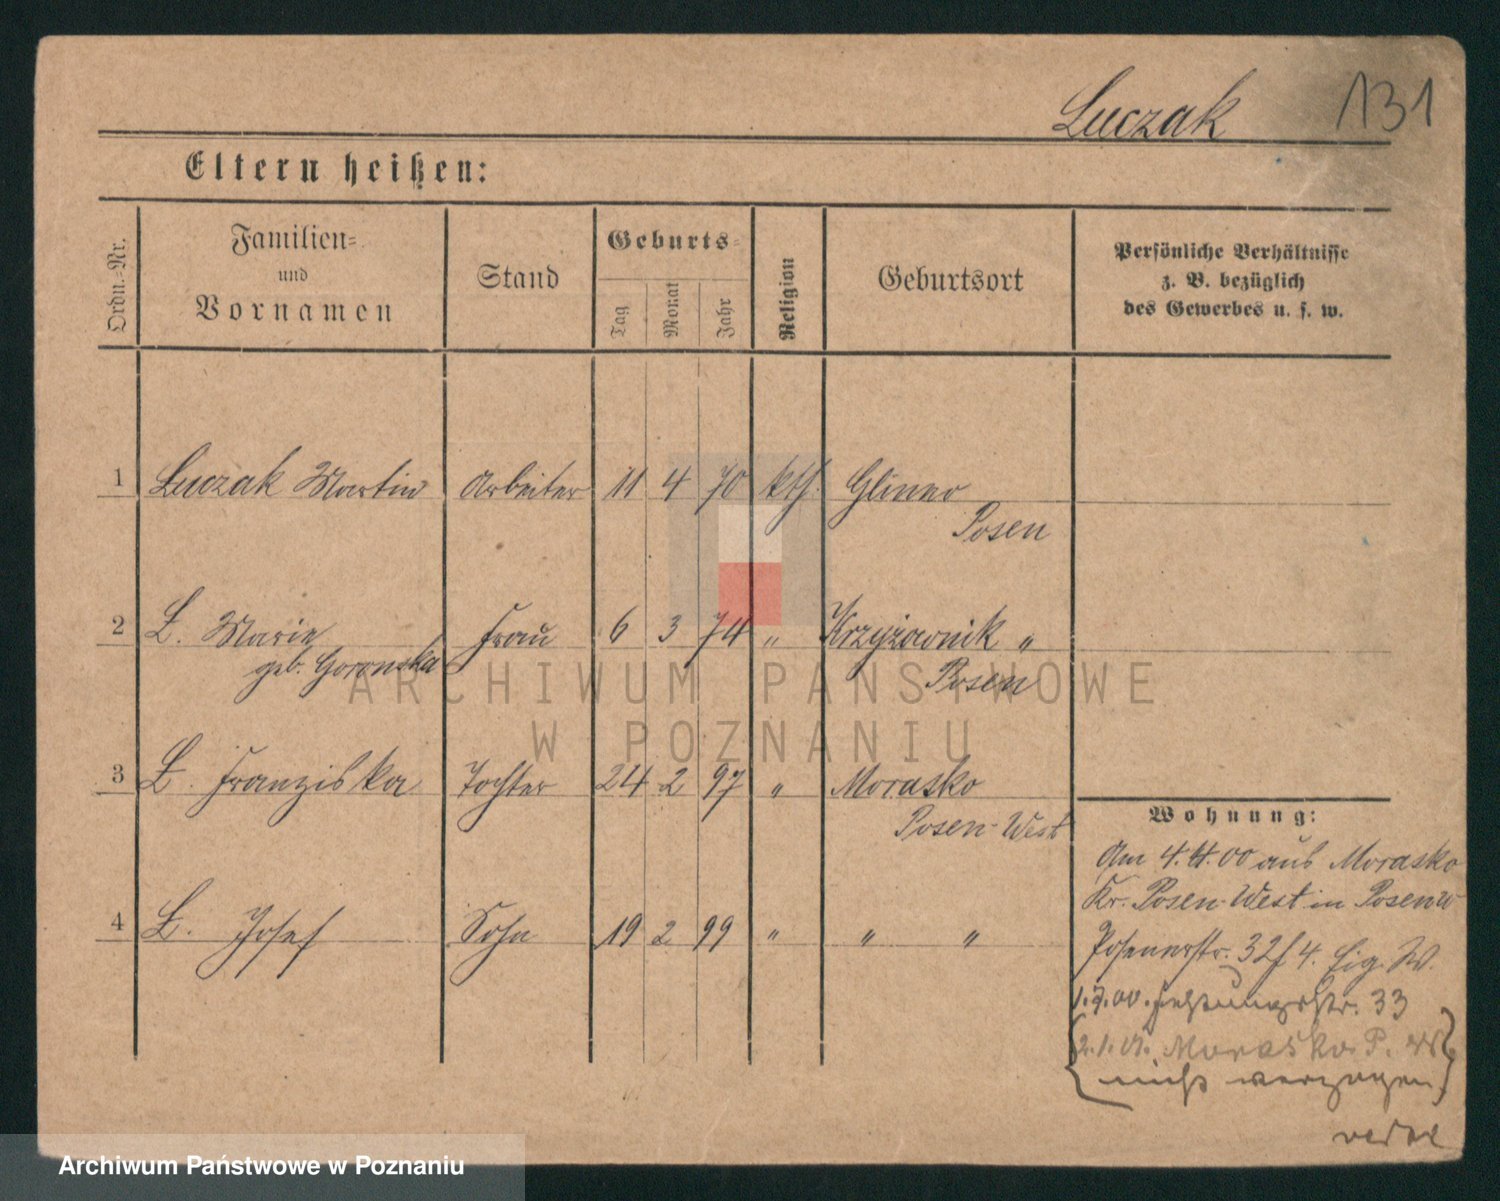 Luczak 131
Eltern heißen:
Ordn.-Nr.
Familien-
und
Vornamen
Stand
Geburts-
Tag
Monat
Jahr
Religion
Geburtsort
Persönliche Verhältnisse
z. B. bezüglich
des Gewerbes u. s. w.
1 Luczak Martin Arbeiter 11 4 70 kth. Glinno
Posen
2 Ł. Marie Frau 6 3 74 " Krzyżownik "
geb. Goronska Posen
3 Ł. Franziska Tochter 24 2 97 " Morasko
Posen-West
4 Ł. Josef Sohn 19 2 99 " " "
Wohnung:
Am 4.4.00 aus Morasko
Kr. Posen-West in Posen W
Posenerstr. 32 f 4. Eig. W.
1.7.00. Festungsstr. 33
2.1.01. Morasko P. W
nicht verzogen
ARCHIWUM PAŃSTWOWE
W POZNANIU
Archiwum Państwowe w Poznaniu